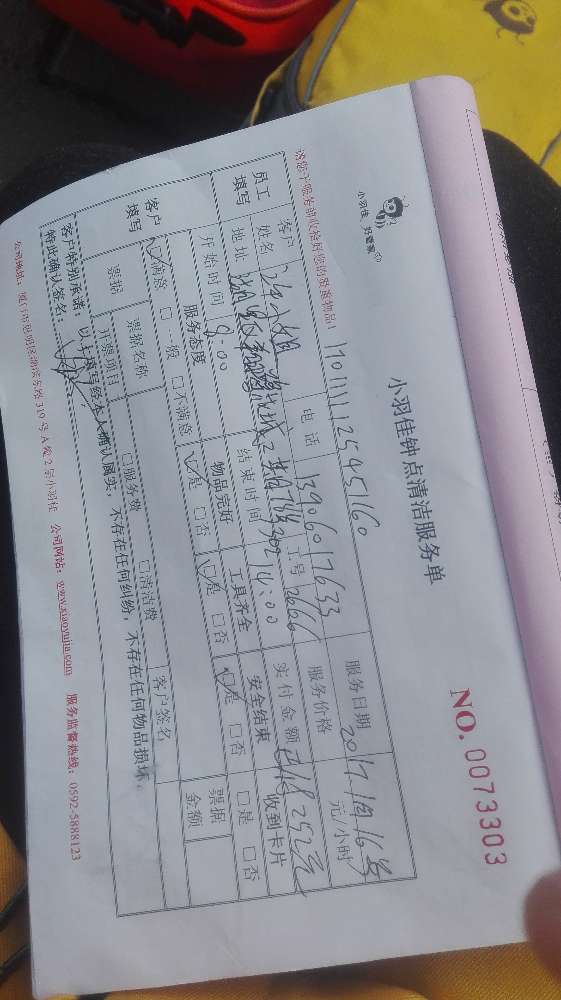 小羽佳 好管家
小羽佳钟点清洁服务单
NO. 0073303
请您于服务前收捡好您的贵重物品!
170111125451160
员工填写
客户姓名
小姐
电话
13906017633
服务日期
2017 1月16号
地址
工号
2666
服务价格
元/小时
开始时间
8:00
结束时间
14:00
实付金额
252元
收到卡片
客户填写
服务态度
物品完好
工具齐全
安全结束
☑满意 □一般 □不满意
☑是 □否
☑是 □否
☑是 □否
□是 □否
票据
票据名称
开票项目
□服务费
□清洁费
客户签名
票据金额
客户特别承诺:以上填写经本人确认属实,不存在任何纠纷,不存在任何物品损坏,
特此确认签名:
公司地址:厦门市思明区湖滨东路319号A栋2层小羽佳 公司网站:www.xiaoyujia.com 服务监督热线:0592-5888123